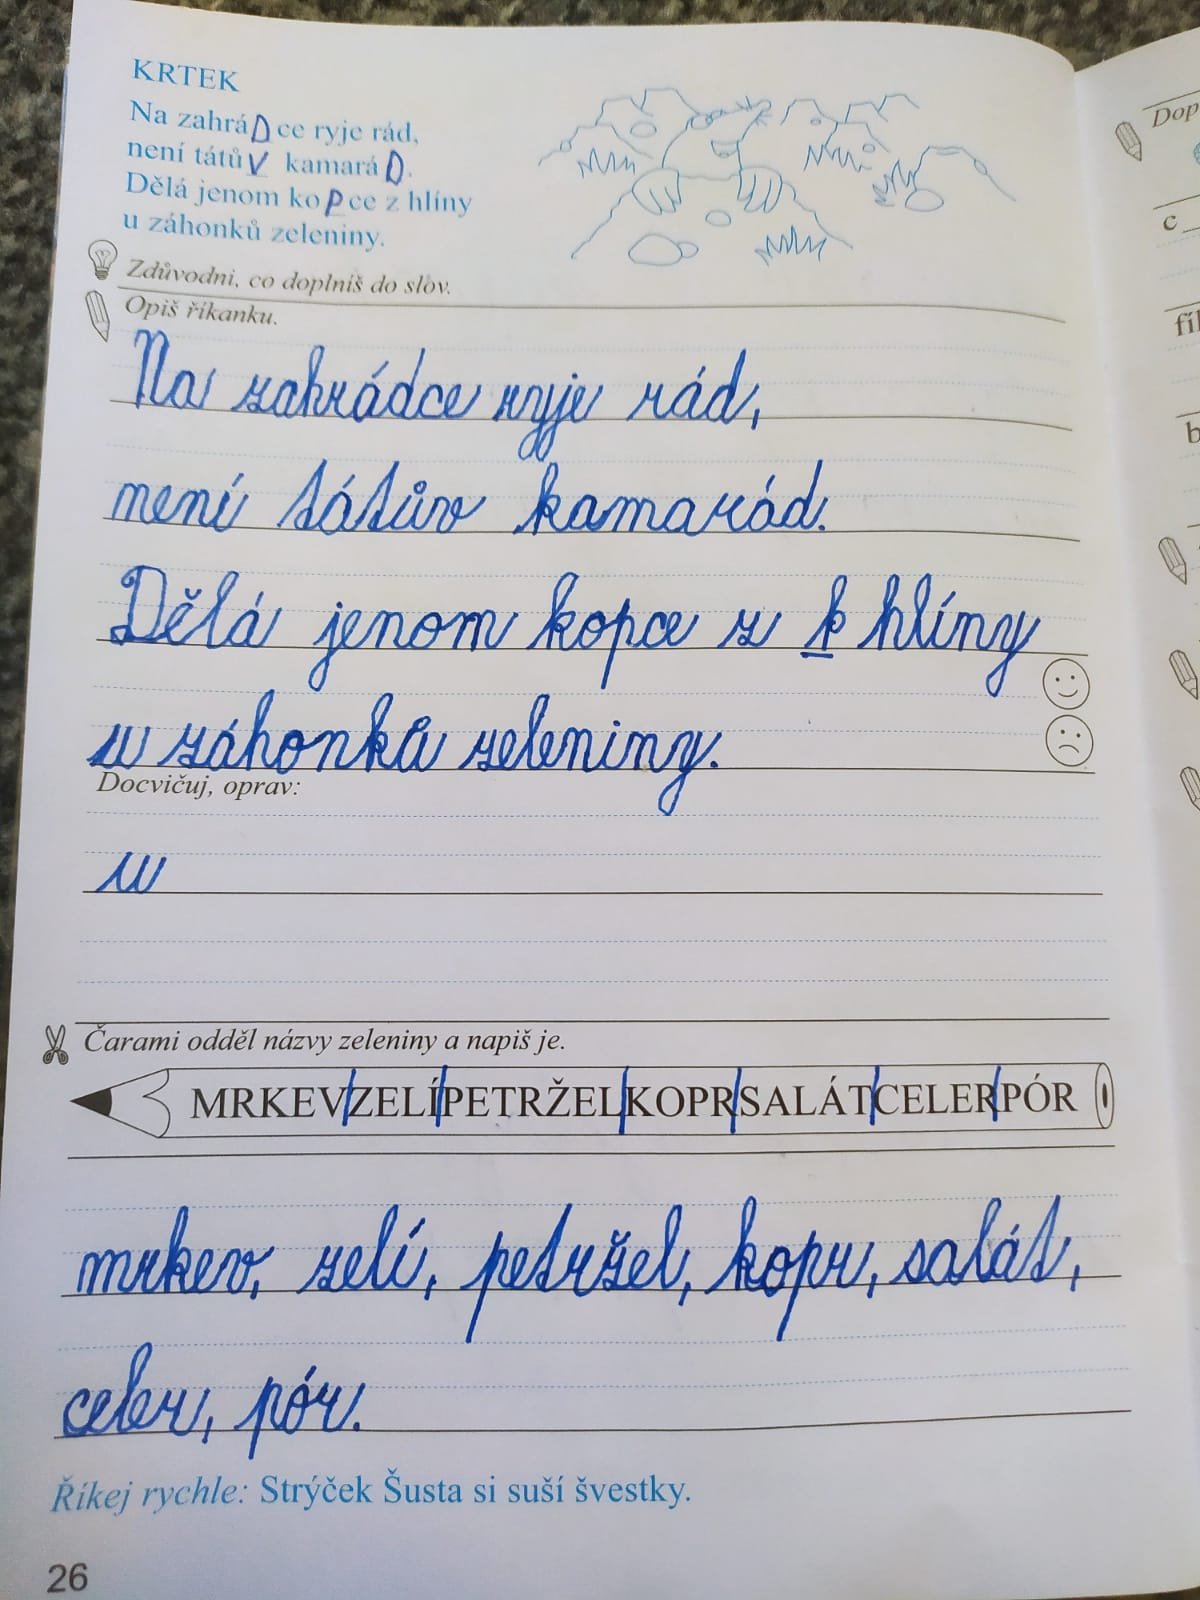 KRTEK
Na zahráDce ryje rád,
není tátůV kamaráD.
Dělá jenom koPce z hlíny
u záhonků zeleniny.
Zdůvodni, co doplníš do slov.
Opiš říkanku.
Na zahrádce ryje rád,
není tátův kamarád.
Dělá jenom kopce z k hlíny
u záhonků zeleniny.
Docvičuj, oprav:
u
Čarami odděl názvy zeleniny a napiš je.
MRKEV|ZELÍ|PETRŽEL|KOPR|SALÁT|CELER|PÓR
mrkev, zelí, petržel, kopr, salát,
celer, pór.
Říkej rychle: Strýček Šusta si suší švestky.
26
Dop
c
fíl
b